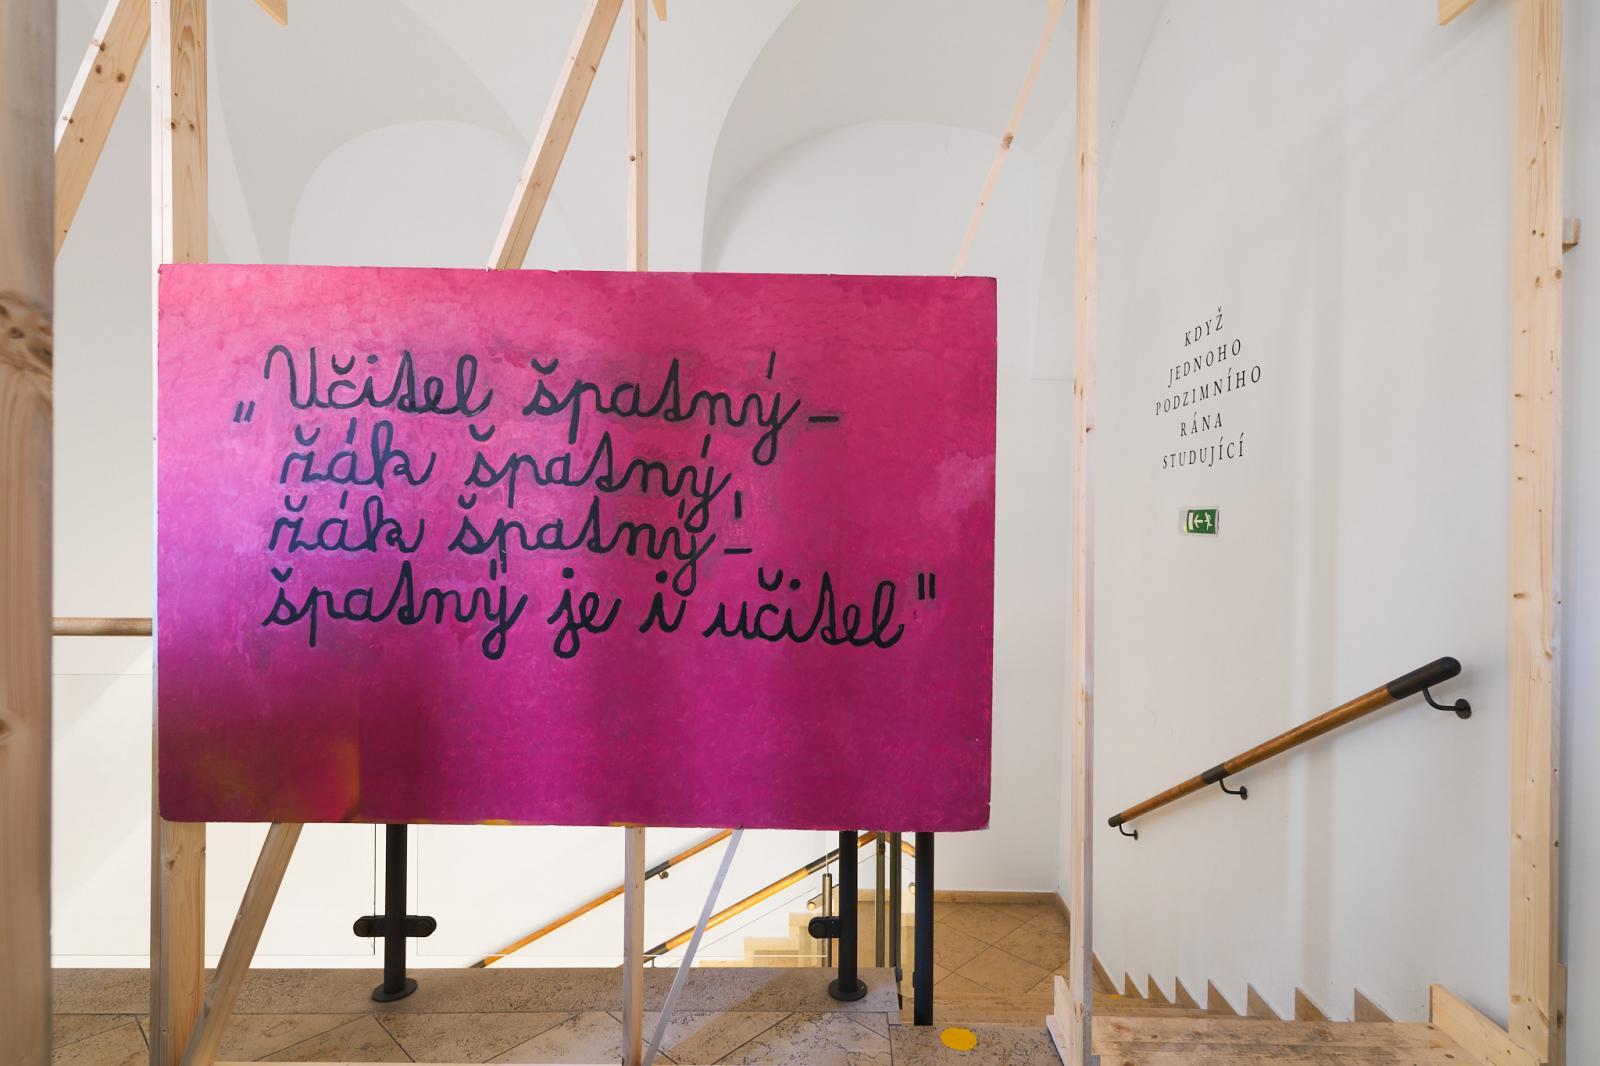 „Učitel špatný –
žák špatný,
žák špatný –
špatný je i učitel"
KDYŽ
JEDNOHO
PODZIMNÍHO
RÁNA
STUDUJÍCÍ